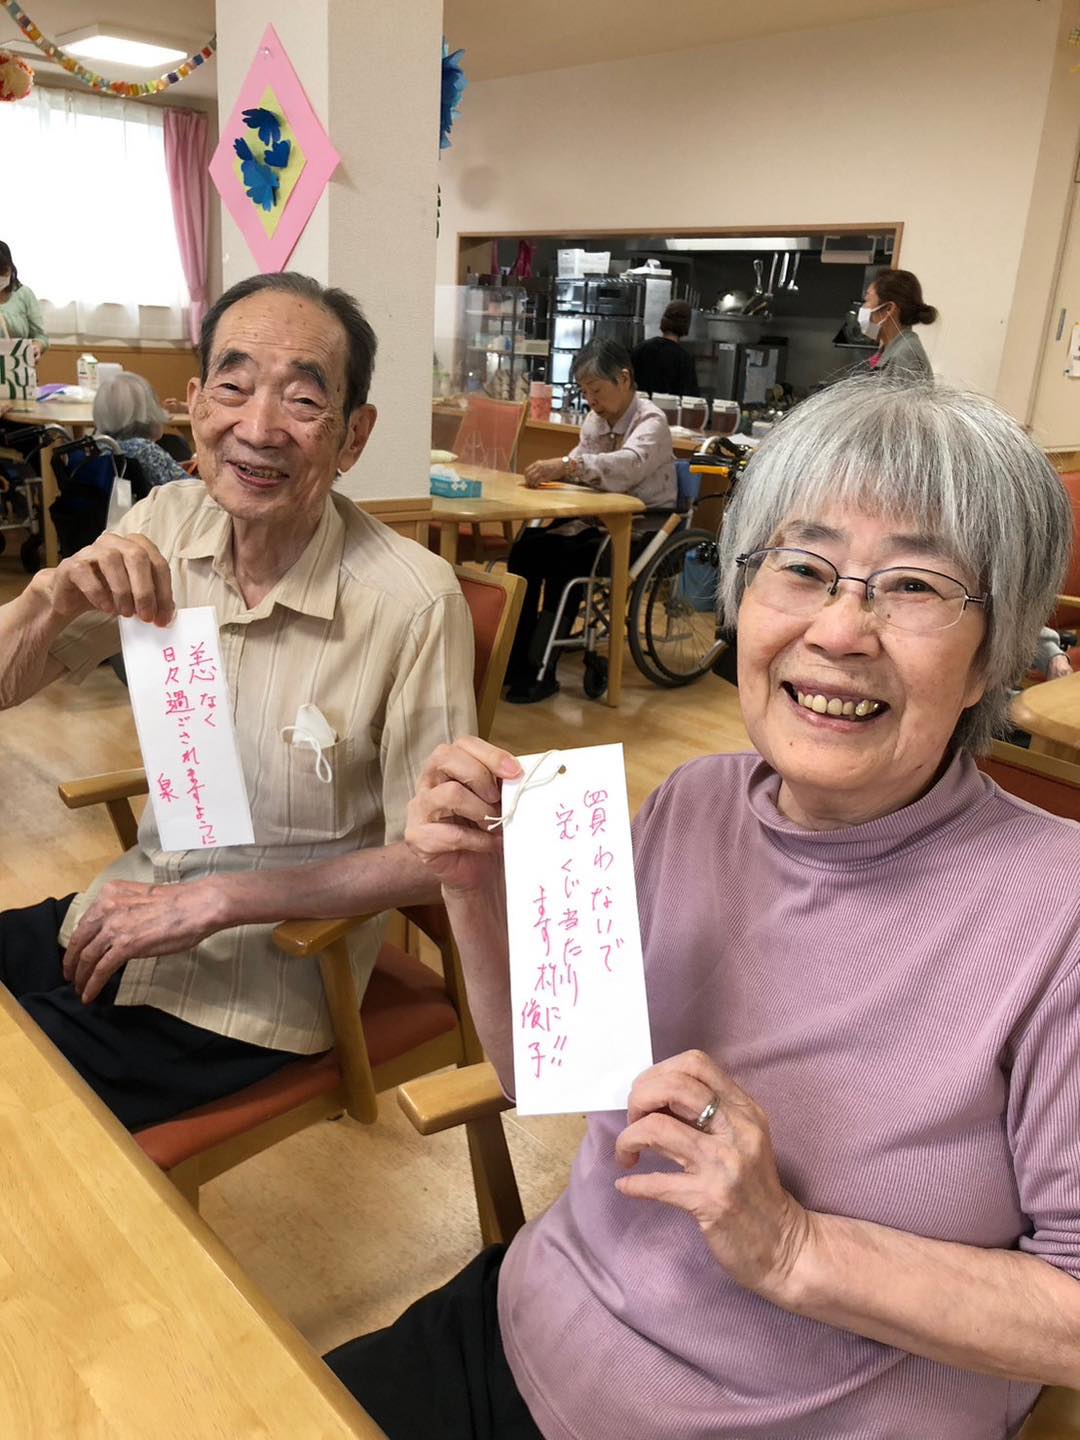 恙なく
日々過ごされますように
泉
買わないで
宝くじ当たり
ます様に!!
俊子